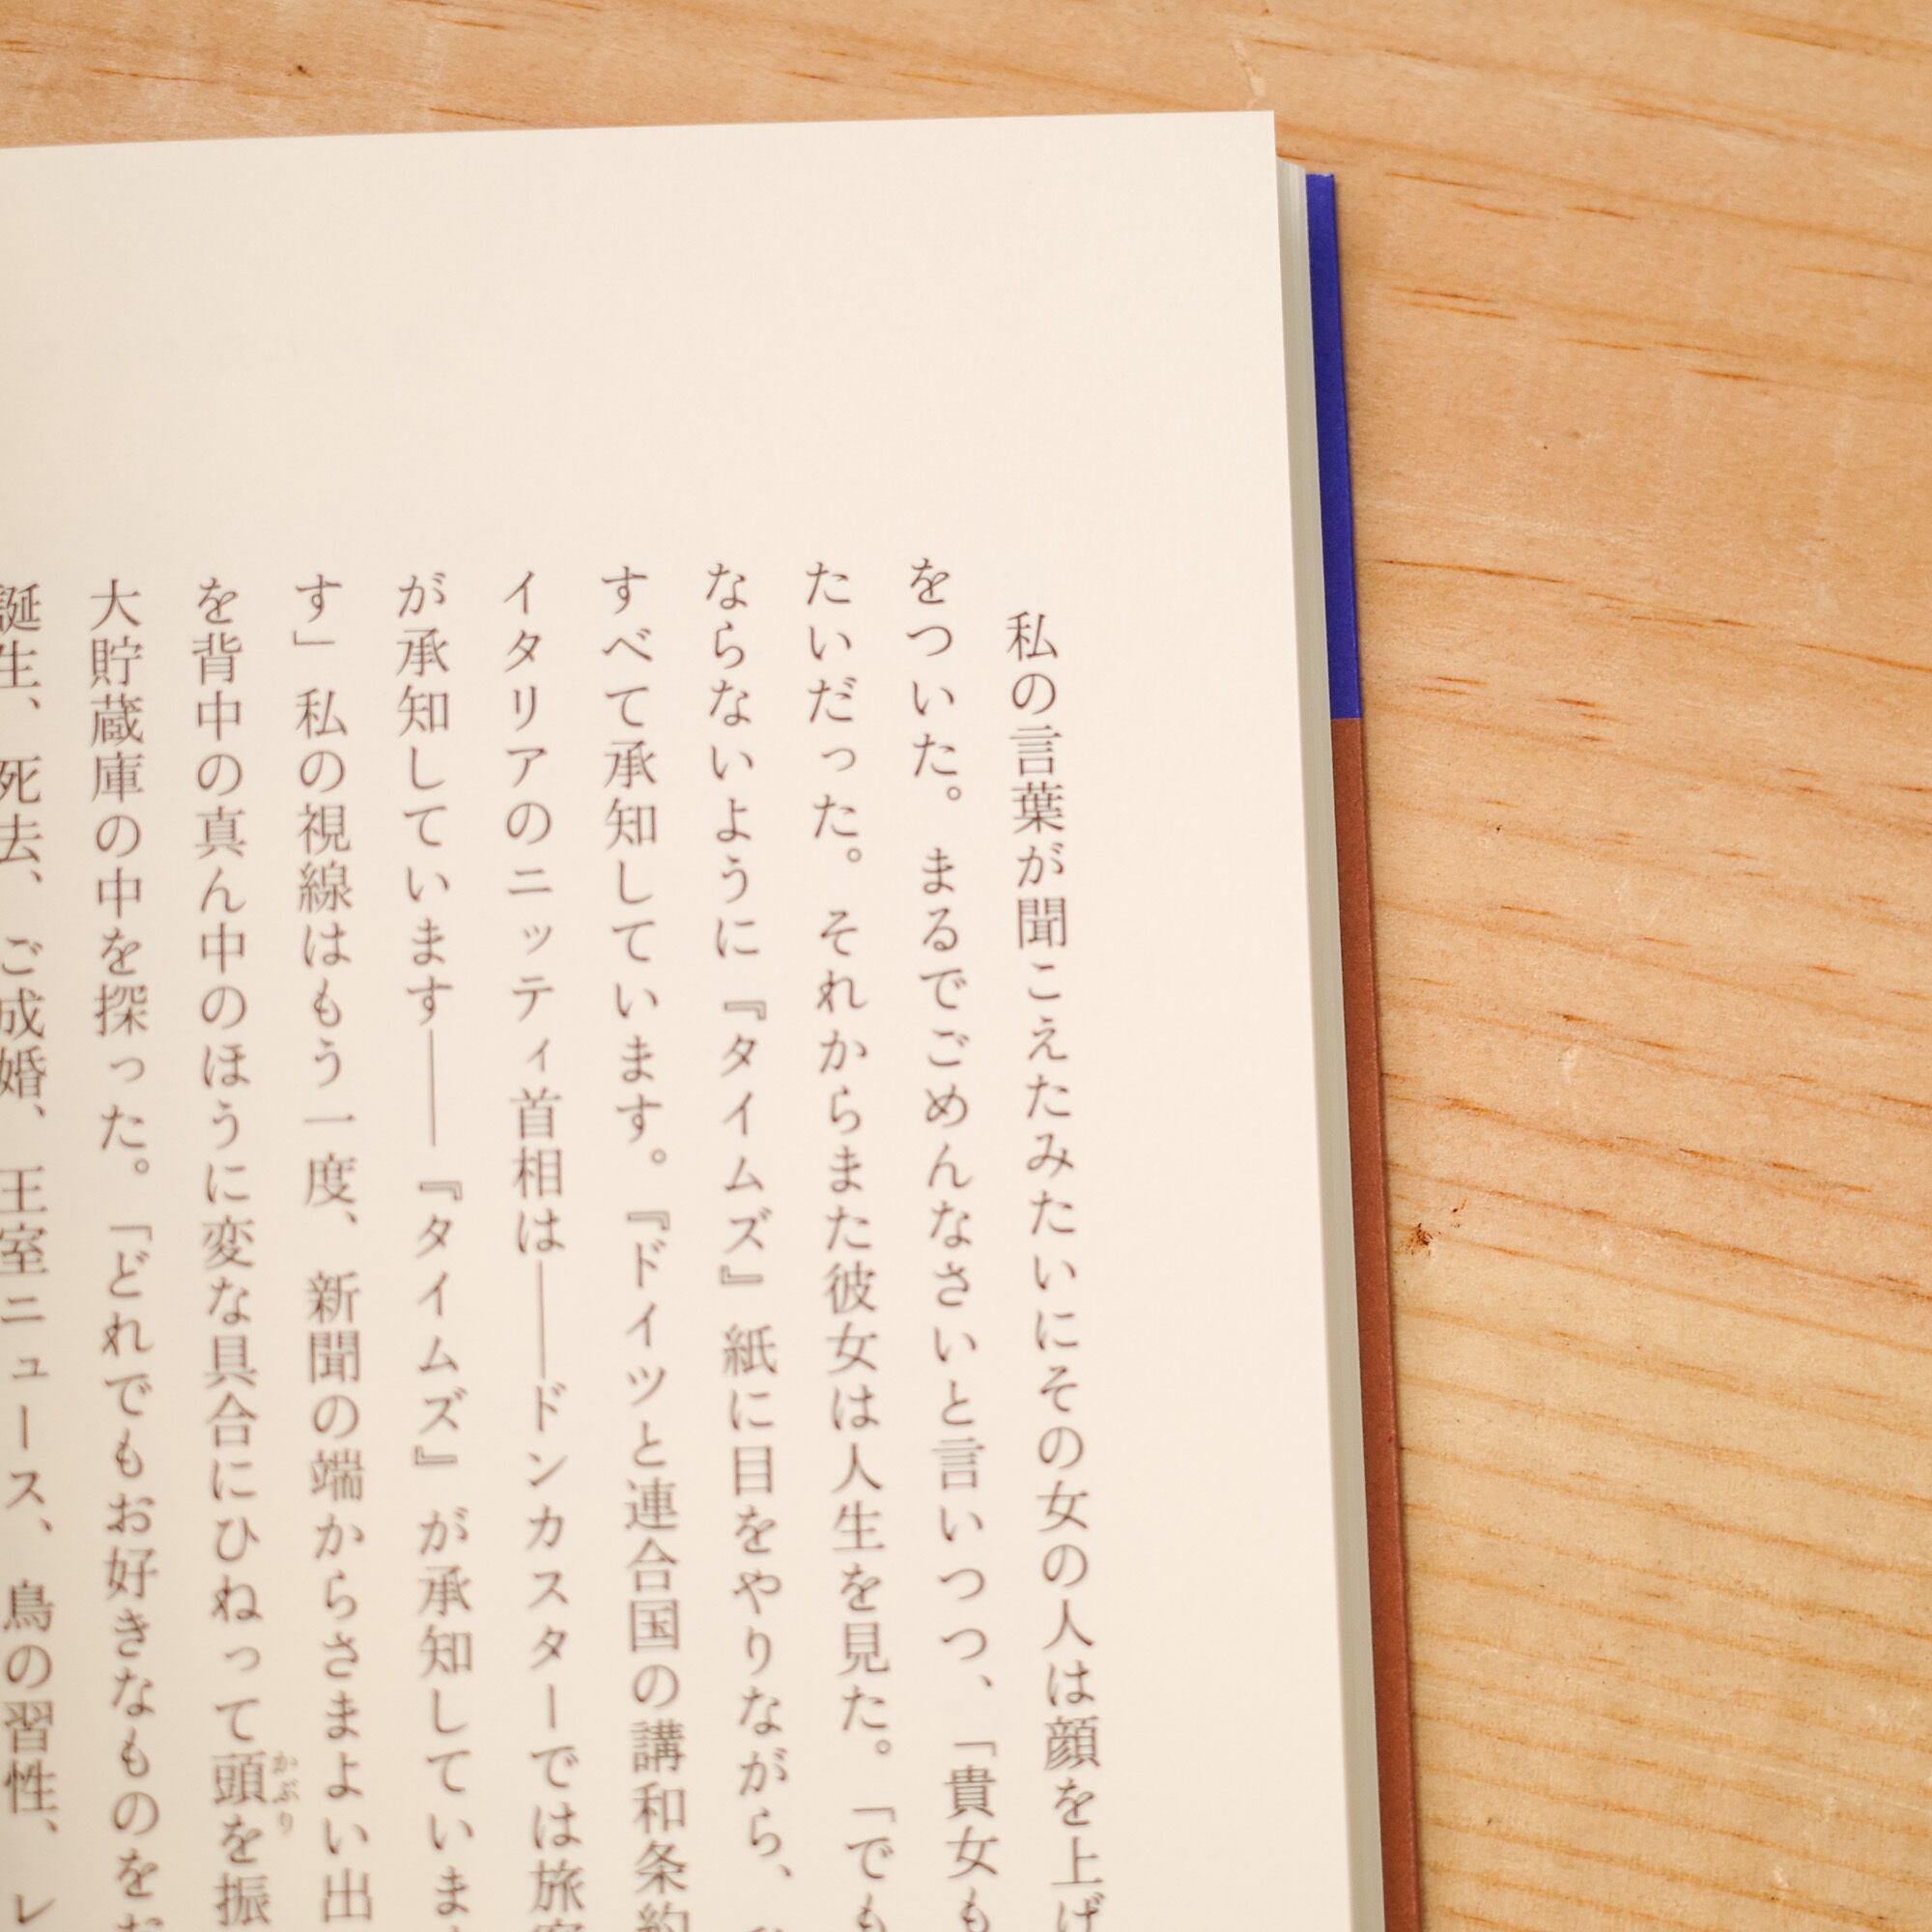 私の言葉が聞こえたみたいにその女の人は顔を上げ
をついた。まるでごめんなさいと言いつつ、「貴女も
たいだった。それからまた彼女は人生を見た。「でも
ならないように『タイムズ』紙に目をやりながら、
すべて承知しています。『ドイツと連合国の講和条約
イタリアのニッティ首相は――ドンカスターでは旅客
が承知しています――『タイムズ』が承知していま
す」私の視線はもう一度、新聞の端からさまよい出
を背中の真ん中のほうに変な具合にひねって頭かぶりを振
大貯蔵庫の中を探った。「どれでもお好きなものをお
誕生、死去、ご成婚、王室ニュース、鳥の習性、レ